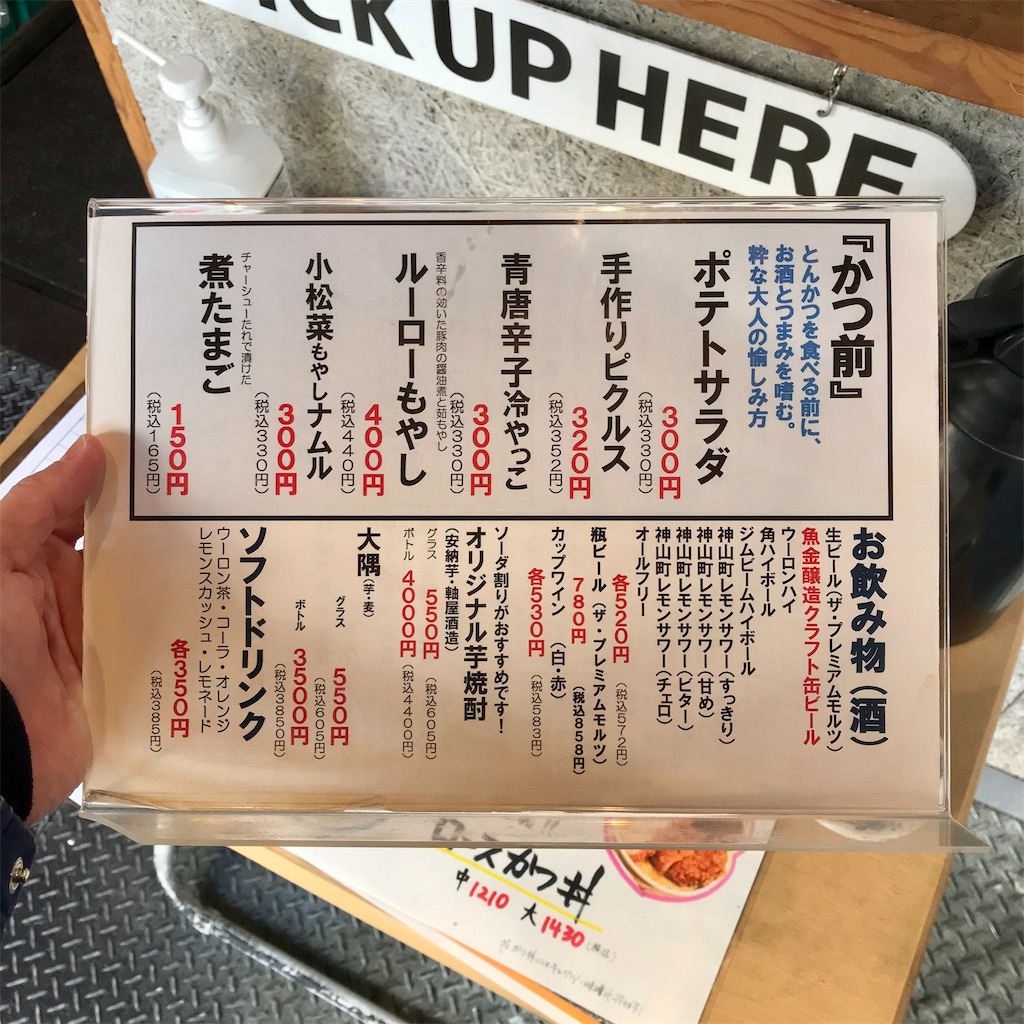 ICK UP HERE
『かつ前』
とんかつを食べる前に、
お酒とつまみを嗜む。
粋な大人の愉しみ方
ポテトサラダ
300円
(税込330円)
手作りピクルス
320円
(税込352円)
青唐辛子冷やっこ
300円
(税込330円)
香辛料の効いた豚肉の醤油煮と茹もやし
ルーローもやし
400円
(税込440円)
小松菜もやしナムル
300円
(税込330円)
チャーシューだれで漬けた
煮たまご
150円
(税込165円)
お飲み物(酒)
生ビール(ザ・プレミアムモルツ)
魚金醸造クラフト缶ビール
ウーロンハイ
角ハイボール
ジムビームハイボール
神山町レモンサワー(すっきり)
神山町レモンサワー(甘め)
神山町レモンサワー(ビター)
神山町レモンサワー(チェロ)
オールフリー
各520円
(税込572円)
瓶ビール(ザ・プレミアムモルツ)
780円
(税込858円)
カップワイン(白・赤)
各530円
(税込583円)
ソーダ割りがおすすめです!
オリジナル芋焼酎
(安納芋・軸屋酒造)
グラス 550円
(税込605円)
ボトル 4000円
(税込4400円)
大隅(芋・麦)
グラス 550円
(税込605円)
ボトル 3500円
(税込3850円)
ソフトドリンク
ウーロン茶・コーラ・オレンジ
レモンスカッシュ・レモネード
各350円
(税込385円)
ロースかつ丼
中1210 大1430